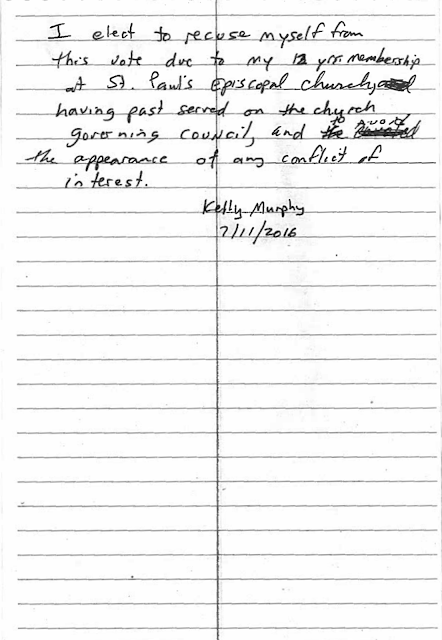 I elect to recuse myself from
this vote due to my 12 yr. membership
at St. Paul's Episcopal church,
having past served on the church
governing council, and to avoid
the appearance of any conflict of
interest.
Kelly Murphy
7/11/2016